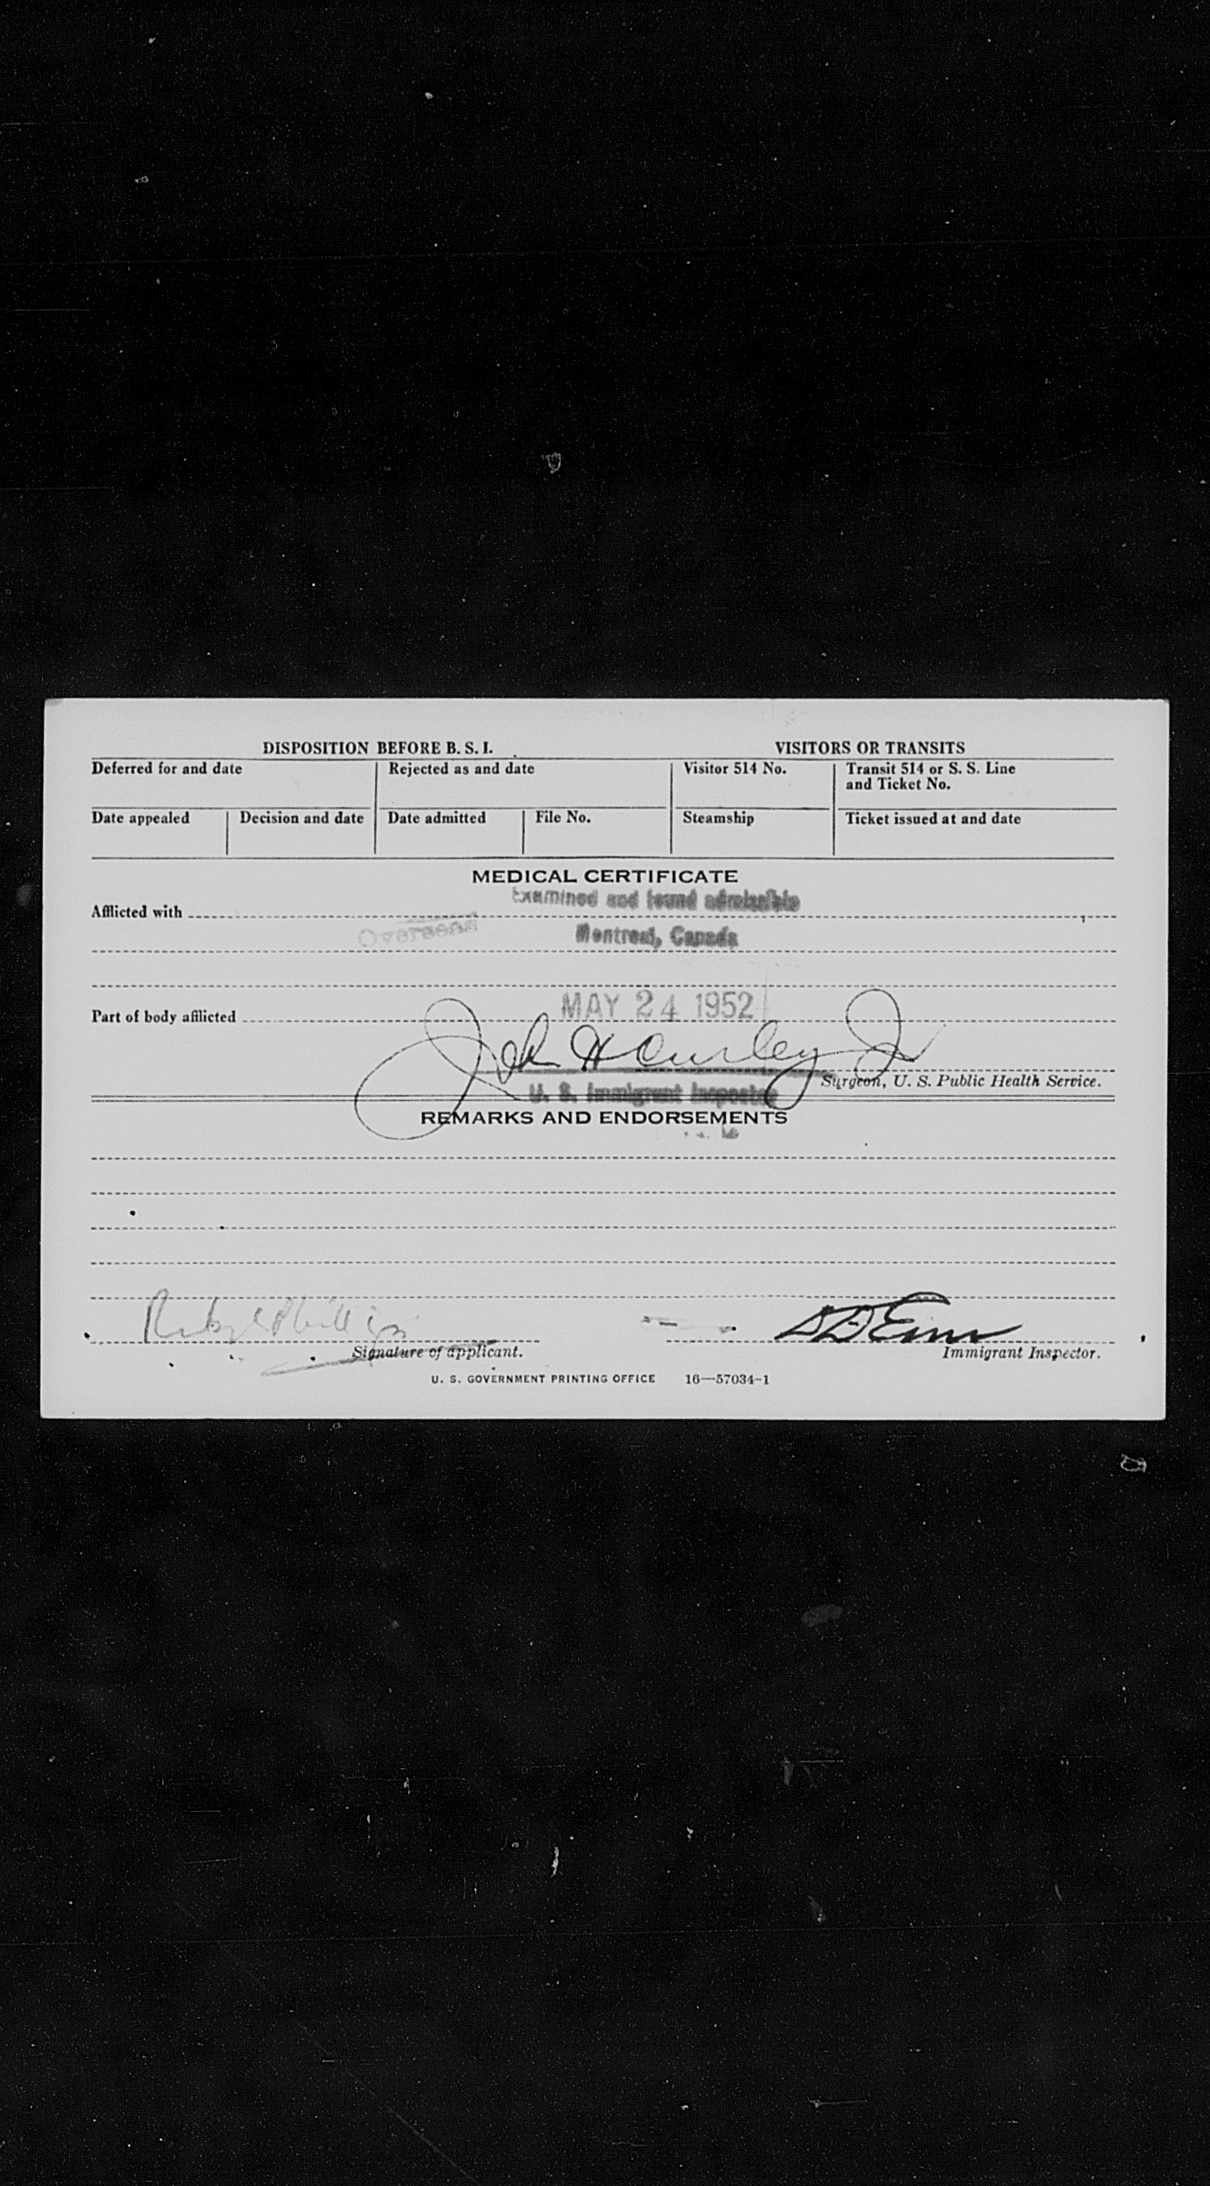 DISPOSITION BEFORE B. S. I.
VISITORS OR TRANSITS
Deferred for and date
Rejected as and date
Visitor 514 No.
Transit 514 or S. S. Line and Ticket No.
Date appealed
Decision and date
Date admitted
File No.
Steamship
Ticket issued at and date
MEDICAL CERTIFICATE
Examined and found admissible
Afflicted with
Overseas
Montreal, Canada
MAY 24 1952
Part of body afflicted
John H Curley Jr
Surgeon, U. S. Public Health Service.
U. S. Immigrant Inspector
REMARKS AND ENDORSEMENTS
Ruby Phillips
Signature of applicant.
Immigrant Inspector.
U. S. GOVERNMENT PRINTING OFFICE 16—57034-1